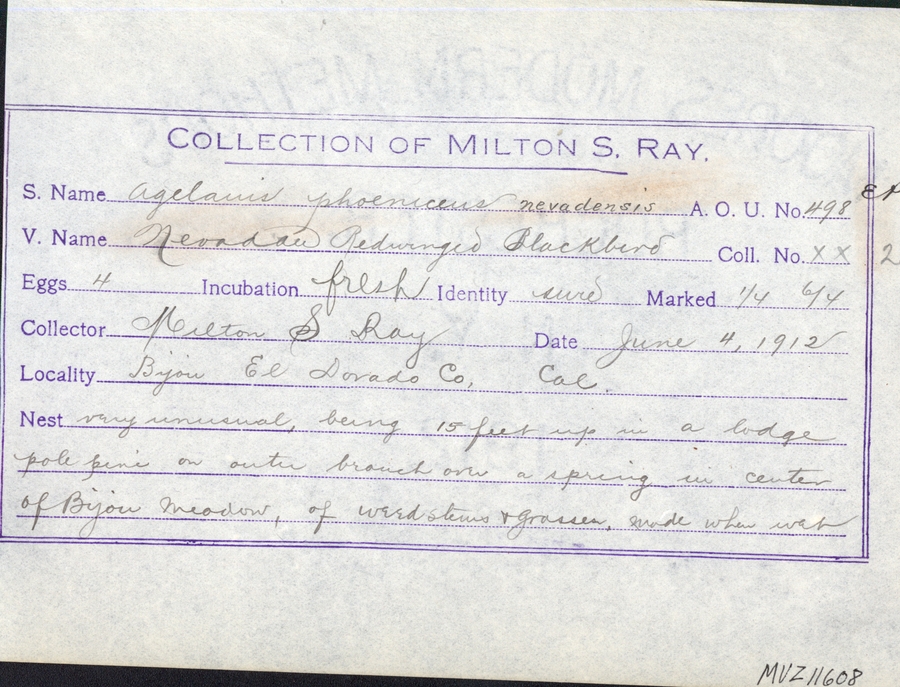 COLLECTION OF MILTON S. RAY.
S. Name Agelaius phoeniceus nevadensis A. O. U. No. 498
V. Name Nevadan Redwinged Blackbird Coll. No. X X 2
Eggs 4 Incubation fresh Identity sure Marked 1/4 6/4
Collector Milton S Ray Date June 4, 1912
Locality Bijou El Dorado Co, Cal.
Nest very unusual, being 15 feet up in a lodge
pole pine on outer branch over a spring in center
of Bijou Meadow, of weed stems & grasses, made when wet
MVZ 11608